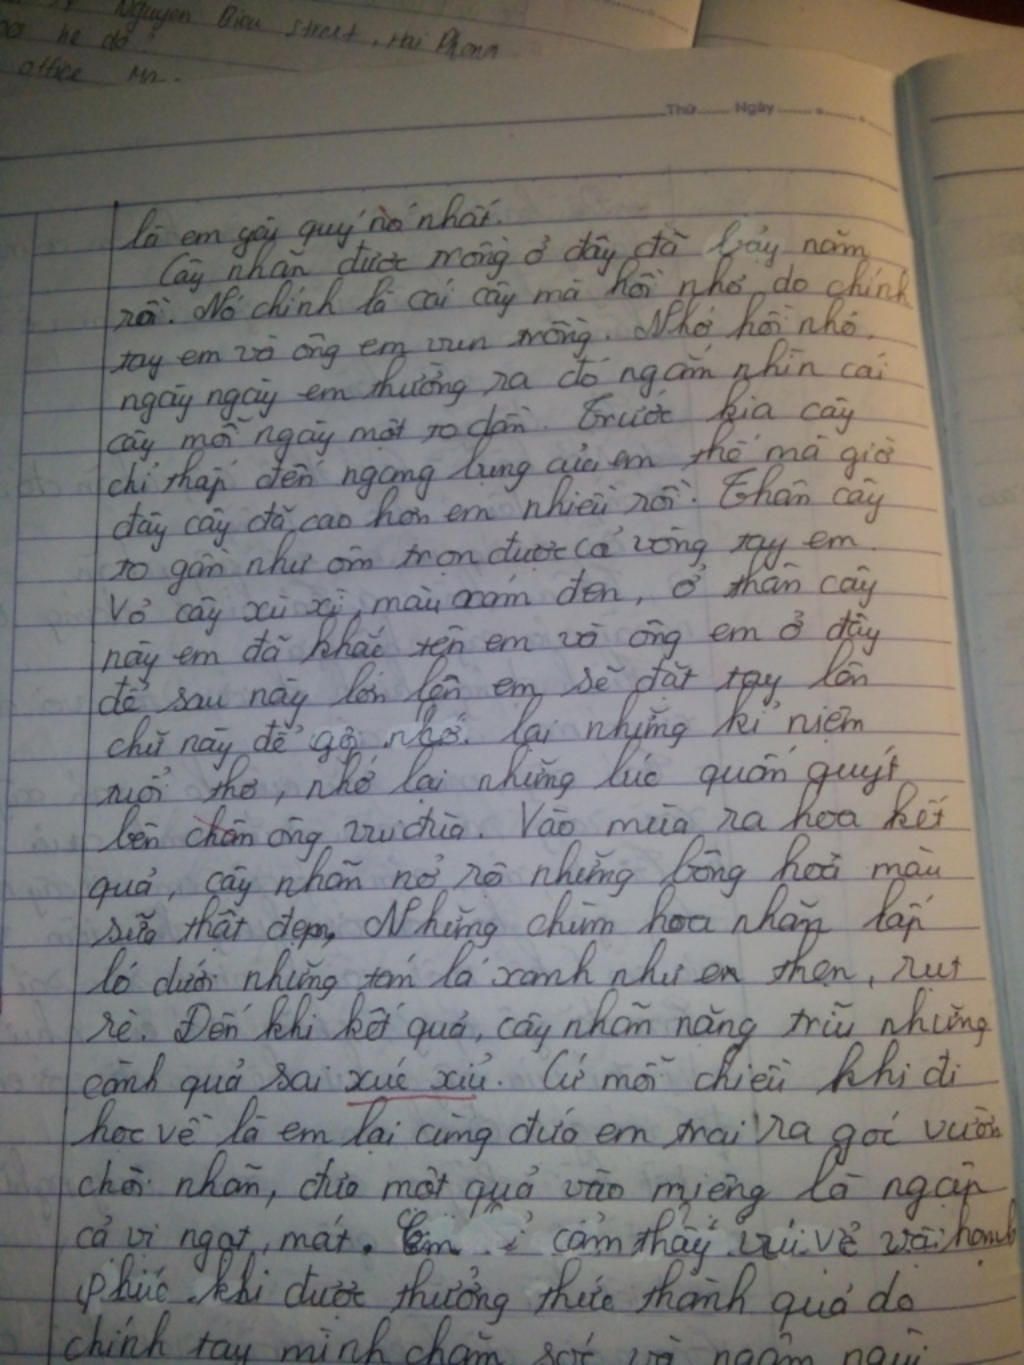 Nguyen Bieu street, Hai Phong
he do
office Mr.
Thứ Ngày
là em yêu quý nó nhất.
Cây nhãn được trồng ở đây đã bảy năm
rồi. Nó chính là cái cây mà hồi nhỏ do chính
tay em và ông em vun trồng. Nhớ hồi nhỏ,
ngày ngày em thường ra đó ngắm nhìn cái
cây mỗi ngày một to dần. Trước kia cây
chỉ thấp đến ngang lưng của em thế mà giờ
đây cây đã cao hơn em nhiều rồi. Thân cây
to gần như ôm trọn được cả vòng tay em.
Vỏ cây xù xì, màu xám đen, ở thân cây
này em đã khắc tên em và ông em ở đây
để sau này lớn lên em sẽ đặt tay lên
chữ này để gợi nhớ lại những kỉ niệm
tuổi thơ, nhớ lại những lúc quấn quýt
bên chân ông vui đùa. Vào mùa ra hoa kết
quả, cây nhãn nở rộ những bông hoa màu
sữa thật đẹp. Những chùm hoa nhãn lấp
ló dưới những tán lá xanh như e thẹn, rụt
rè. Đến khi kết quả, cây nhãn nặng trĩu những
cành quả sai xúc xỉu. Cứ mỗi chiều khi đi
học về là em lại cùng đứa em trai ra góc vườn
chơi nhãn, đưa một quả vào miệng là ngập
cả vị ngọt, mát. Em cảm thấy vui vẻ và hạnh
phúc khi được thưởng thức thành quả do
chính tay mình chăm sóc và ngắm nghía